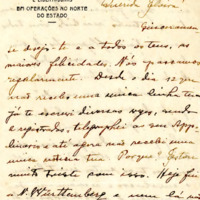 EM OPERAÇÕES NO NORTE
DO ESTADO
Querida Elvira
te desejo e a todos os teus, as
maiores felicidades. Nós passamos
regularmente. Desde o dia 12 que
não recebo uma unica linha tua
já te escrevi diversas vezes, mandei
e registrados, telegraphei ao seu Apol-
linario e até agora não recebi uma
unica noticia tua. Porque? Estou
muito triste com isso. Hoje fui
a N. Württemberg e nem lá